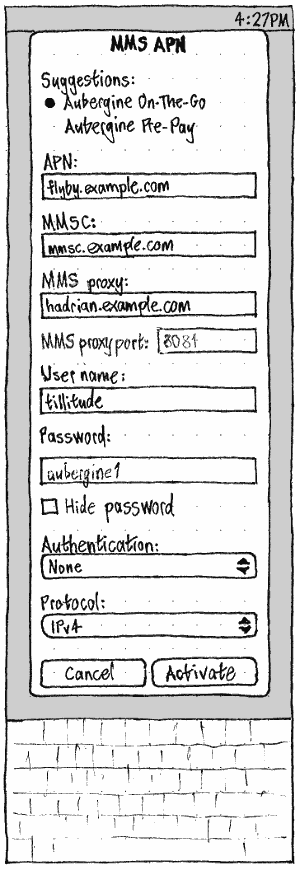 4:27PM
MMS APN
Suggestions:
Aubergine On-The-Go
Aubergine Pre-Pay
APN:
flyby.example.com
MMSC:
mmsc.example.com
MMS proxy:
hadrian.example.com
MMS proxy port: 8081
User name:
tillitude
Password:
aubergine1
Hide password
Authentication:
None
Protocol:
IPv4
Cancel Activate